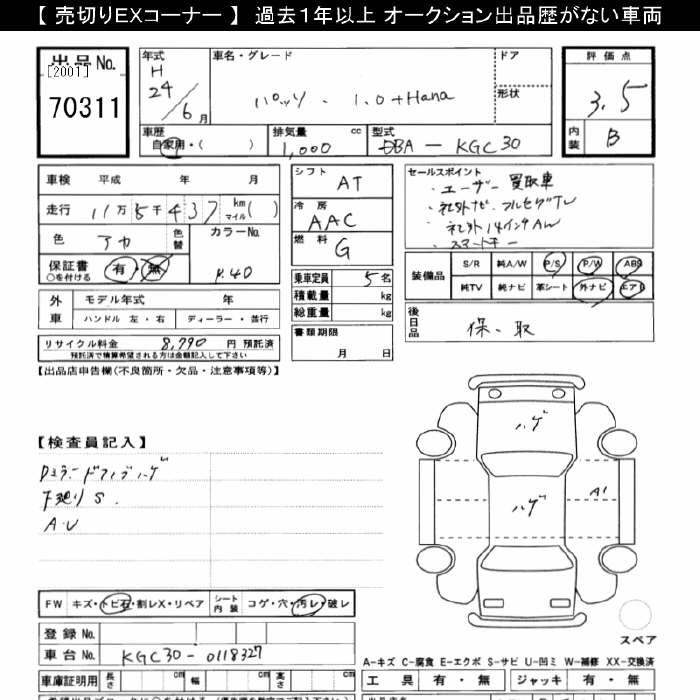 【 売切りEXコーナー 】 過去1年以上 オークション出品歴がない車両
出品 No.
[2001]
70311
年式
H
24/6月
車名・グレード
パッソ . 1.0 +Hana
ドア
形状
評価点
3.5
内装
B
車歴
自家用・( )
排気量 cc
1,000
型式
DBA - KGC30
車検 平成 年 月
走行 11万5千437 km マイル( )
色 アカ 色替
カラーNo.
R40
保証書 有・無
○を付ける
シフト
AT
冷房
AAC
燃料
G
乗車定員 5名
積載量 kg
総重量 kg
書類期限
月 日
セールスポイント
・ユーザー買取車
・社外ナビ フルセグTV
・社外14インチAW
・スマートキー
装備品
S/R 純A/W P/S P/W ABS
純TV 純ナビ 革シート 外ナビ エアB
後日品
保、取
外車
モデル年式 年
ハンドル 左・右 ディーラー・並行
リサイクル料金 8,790 円 預託済
預託済で積算希望される方は金額記入して下さい
【出品店申告欄(不良箇所・欠品・注意事項等)】
【検査員記入】
Dミラードアノブハゲ
下廻りS.
A.U
ハゲ
ハゲ
A1
スペア
FW キズ・トビ石・割レX・リペア シート内装 コゲ・穴・汚レ・破レ
登録 No.
車台 No. KGC30-0118327
A-キズ C-腐食 E-エクボ S-サビ U-凹ミ W-補修 XX-交換済
車庫証明用 長さ 幅 高さ
工具 有・無 ジャッキ 有・無